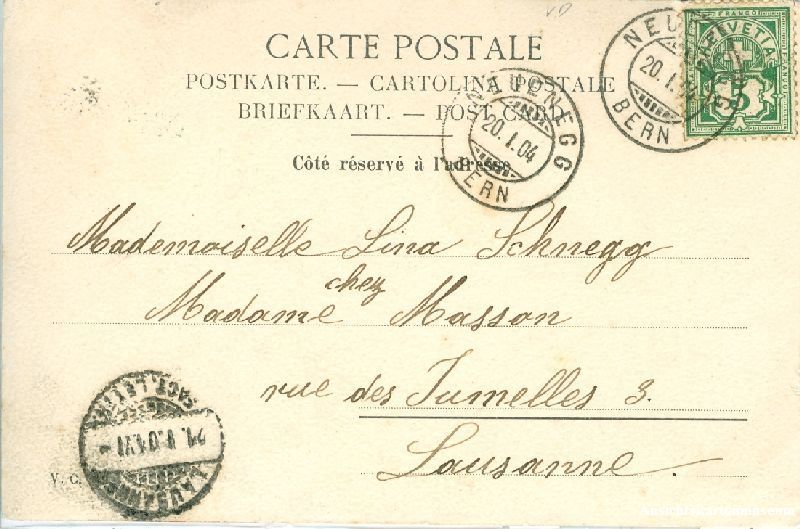 CARTE POSTALE
POSTKARTE. — CARTOLINA POSTALE
BRIEFKAART. — POST CARD
Côté réservé à l'adresse
NEUENEGG
20.I.04
BERN
BERN
20.I.
FRANCO
HELVETIA
5
Mademoiselle Lina Schnegg
chez
Madame Masson
rue des Jumelles 3.
Lausanne.
LAUSANNE
V. G.
Ansichtskartenmuseum